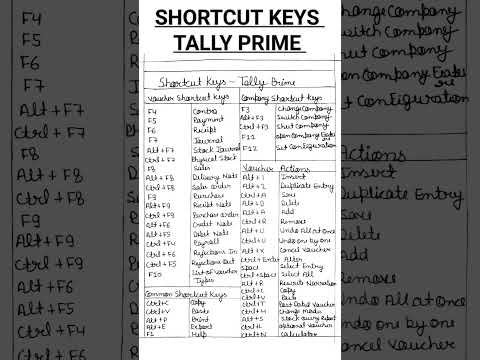 SHORTCUT KEYS
TALLY PRIME
Shortcut Keys - Tally Prime
Voucher Shortcut Keys
F4 Contra
F5 Payment
F6 Receipt
F7 Journal
Alt + F7 Stock Journal
Ctrl + F7 Physical Stock
F8 Sales
Alt + F8 Delivery Note
Ctrl + F8 Sales order
F9 Purchase
Alt + F9 Receipt Note
Ctrl + F9 Purchase order
Alt + F6 Credit Note
Alt + F5 Debit Note
Ctrl + F4 Payroll
Ctrl + F6 Rejections In
Ctrl + F5 Rejections Out
F10 List of Voucher
Types
Common Shortcut Keys
Ctrl + C Copy
Ctrl + V Paste
Alt + P Print
Alt + E Export
F1 Help
Company Shortcut Keys
F3 Change Company
Alt + F3 Switch Company
Ctrl + F3 Shut Company
F11 open Company Features
F12 Set Configuration
Voucher Actions
Alt + I Insert
Alt + 2 Duplicate Entry
Ctrl + A Save
Alt + D Delete
Alt + A Add
Ctrl + R Remove
Alt + U Undo All at once
Ctrl + U Undo one by one
Alt + X Cancel Voucher
Ctrl + Enter Alter
Space Select Entry
Ctrl + Space Select All
Alt + R Rewrite Narration
Ctrl + C Copy
Ctrl + V Paste
Ctrl + T Post Dated Voucher
Ctrl + H change mode
Alt + S Stock query Report
Ctrl + L optional Voucher
Ctrl + N Calculator
F4
F5
F6
F7
Alt + F7
Ctrl + F7
F8
Alt + F8
Ctrl + F8
F9
Alt + F9
Ctrl + F9
Alt + F6
Alt + F5